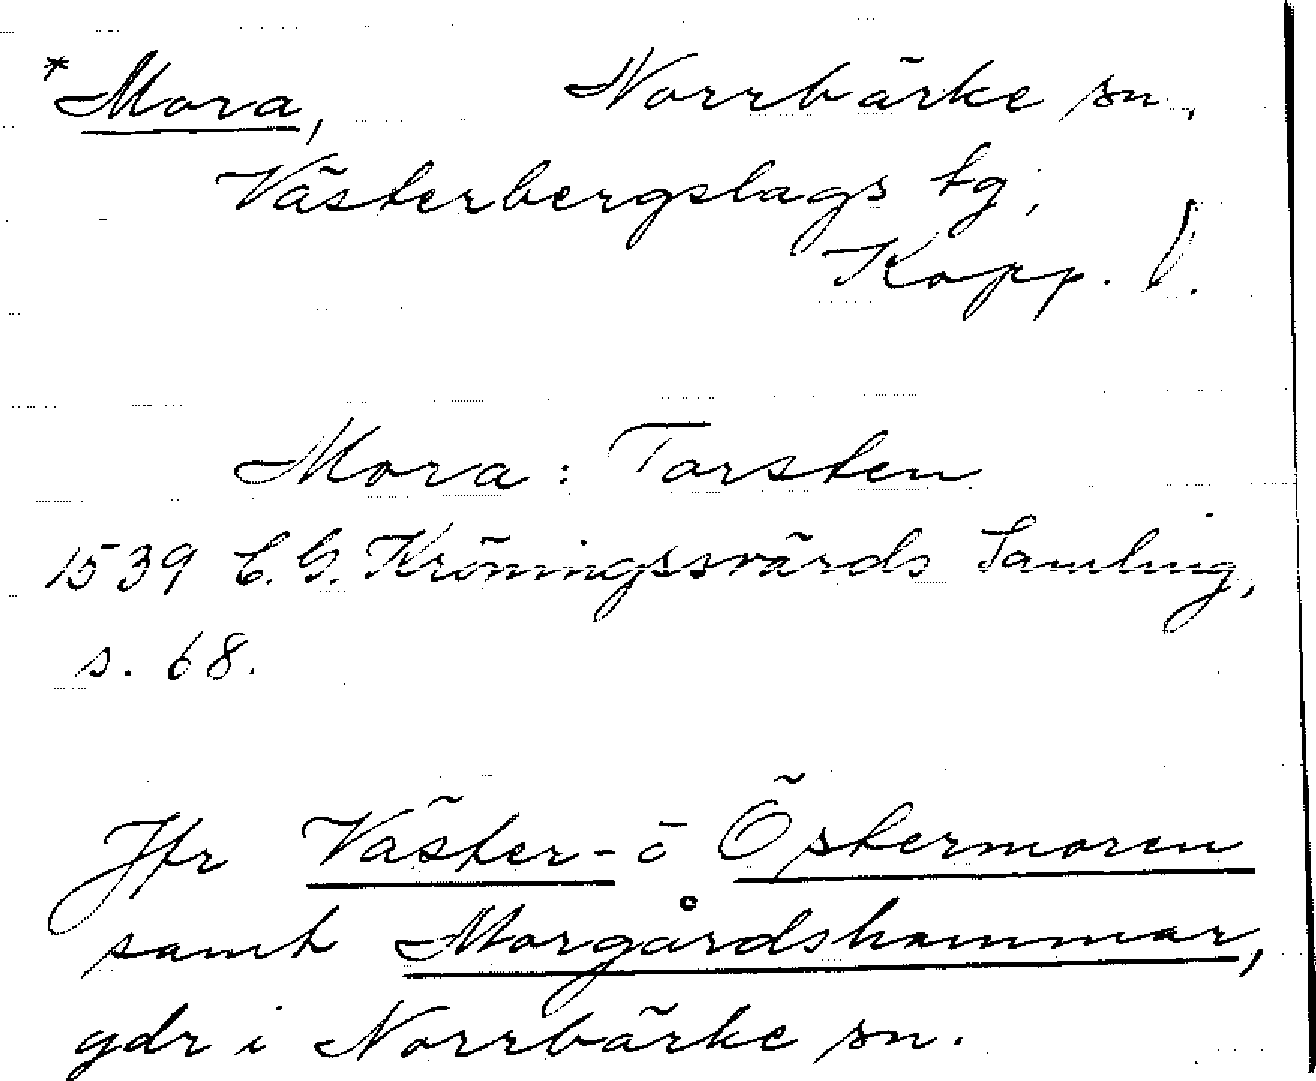 *Mora, Norrbärke sn,
Västerbergslags tg,
Kopp. l.
Mora: Torsten
1539 C. G. Kröningssvärds Samling,
s. 68.
Jfr Väster- o Östermoren
samt Morgårdshammar,
gdr i Norrbärke sn.